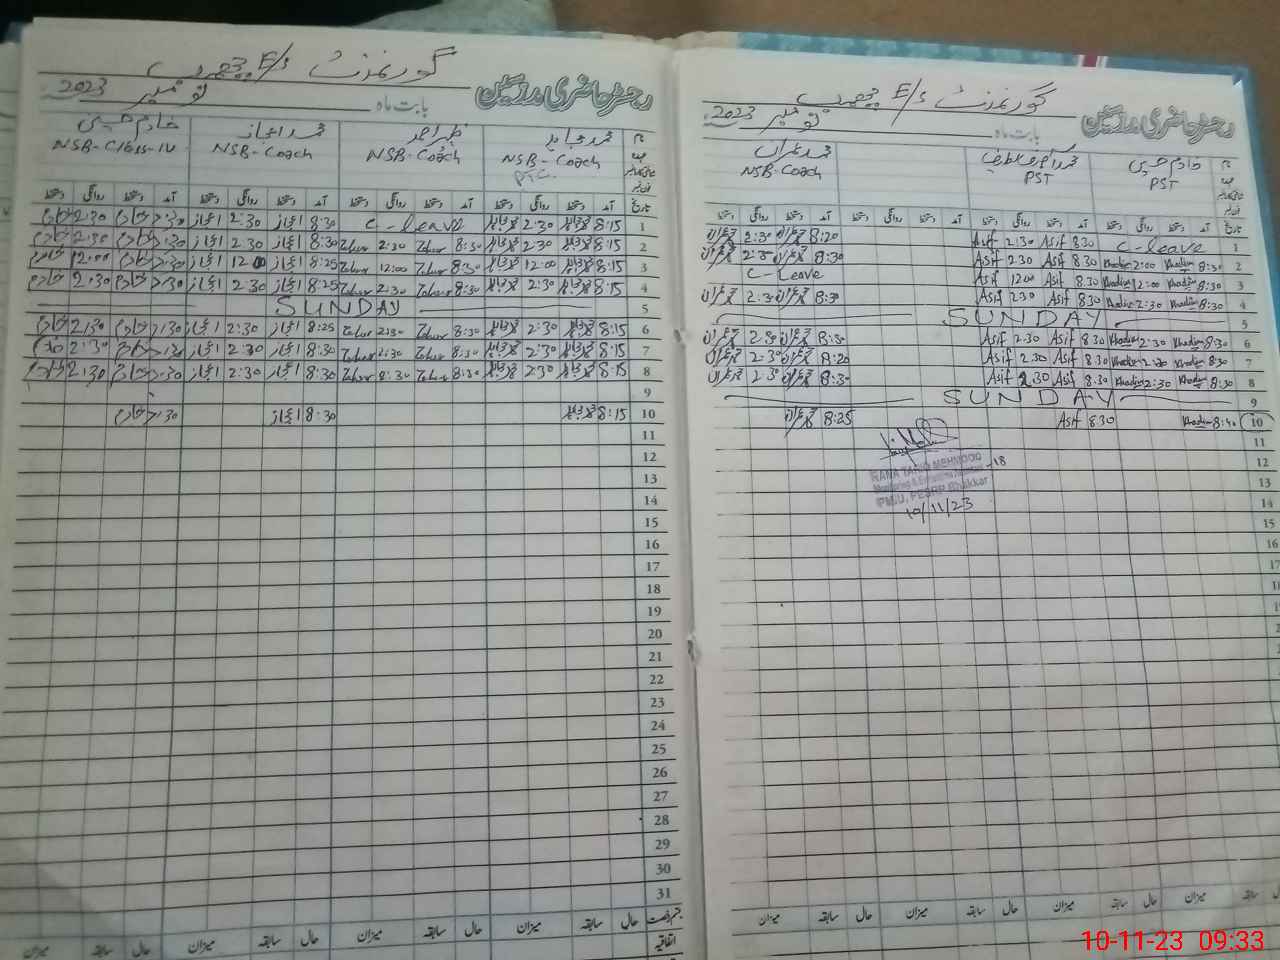 گورنمنٹ E/S
رجسٹر حاضری مدرسین
بابت ماہ نومبر 2023
محمد مجاہد ظہیر احمد محمد اعجاز خادم حسین
NSB-Coach NSB-Coach NSB-Coach NSB-Class-IV
PTC
تاریخ آمد دستخط روانگی دستخط آمد دستخط روانگی دستخط آمد دستخط روانگی دستخط آمد دستخط روانگی دستخط
1 8:15 2:30 C-leave 8:30 اعجاز 2:30 اعجاز 7:30 خادم 2:30 خادم
2 8:15 2:30 8:30 Zaheer 2:30 Zaheer 8:30 اعجاز 2:30 اعجاز 7:30 خادم 2:30 خادم
3 8:15 12:00 8:30 Zaheer 12:00 Zaheer 8:25 اعجاز 12:00 اعجاز 7:30 خادم 12:00 خادم
4 8:15 2:30 8:30 Zaheer 2:30 Zaheer 8:25 اعجاز 2:30 اعجاز 7:30 خادم 2:30 خادم
5 SUNDAY
6 8:15 2:30 8:30 Zaheer 2:30 Zaheer 8:25 اعجاز 2:30 اعجاز 7:30 خادم 2:30 خادم
7 8:15 2:30 8:30 Zaheer 2:30 Zaheer 8:30 اعجاز 2:30 اعجاز 7:30 خادم 2:30 خادم
8 8:15 2:30 8:30 Zaheer 8:30 Zaheer 8:30 اعجاز 2:30 اعجاز 7:30 خادم 2:30 خادم
9
10 8:15 8:30 اعجاز 7:30 خادم
11
12
13
14
15
16
17
18
19
20
21
22
23
24
25
26
27
28
29
30
31
حال سابقہ میزان حال سابقہ میزان حال سابقہ میزان
اتفاقیہ
گورنمنٹ E/S
رجسٹر حاضری مدرسین
بابت ماہ نومبر 2023
خادم حسین محمد عمران
PST PST NSB-Coach
تاریخ آمد دستخط روانگی دستخط آمد دستخط روانگی دستخط آمد دستخط روانگی دستخط آمد دستخط روانگی دستخط
1 C-leave 8:30 Asif 2:30 Asif 8:20 عمران 2:30 عمران
2 8:30 Khadim 2:00 Khadim 8:30 Asif 2:30 Asif 8:30 عمران 2:30 عمران
3 8:30 Khadim 12:00 Khadim 8:30 Asif 12:00 Asif C-Leave
4 8:30 Khadim 2:30 Khadim 8:30 Asif 2:30 Asif 8:30 عمران 2:30 عمران
5 SUNDAY
6 8:30 Khadim 2:30 Khadim 8:30 Asif 2:30 Asif 8:30 عمران 2:30 عمران
7 8:30 Khadim 2:30 Khadim 8:30 Asif 2:30 Asif 8:20 عمران 2:30 عمران
8 8:30 Khadim 2:30 Khadim 8:30 Asif 2:30 Asif 8:30 عمران 2:30 عمران
9 SUNDAY
10 8:40 Khadim 8:30 Asif 8:25 عمران
11
12
13
14
15
16
17
RANA TARIQ MEHMOOD -18
Monitoring & Evaluation
PMIU, PESRP Bhakkar
10/11/23
حال سابقہ میزان حال سابقہ میزان حال سابقہ میزان
10-11-23 09:33